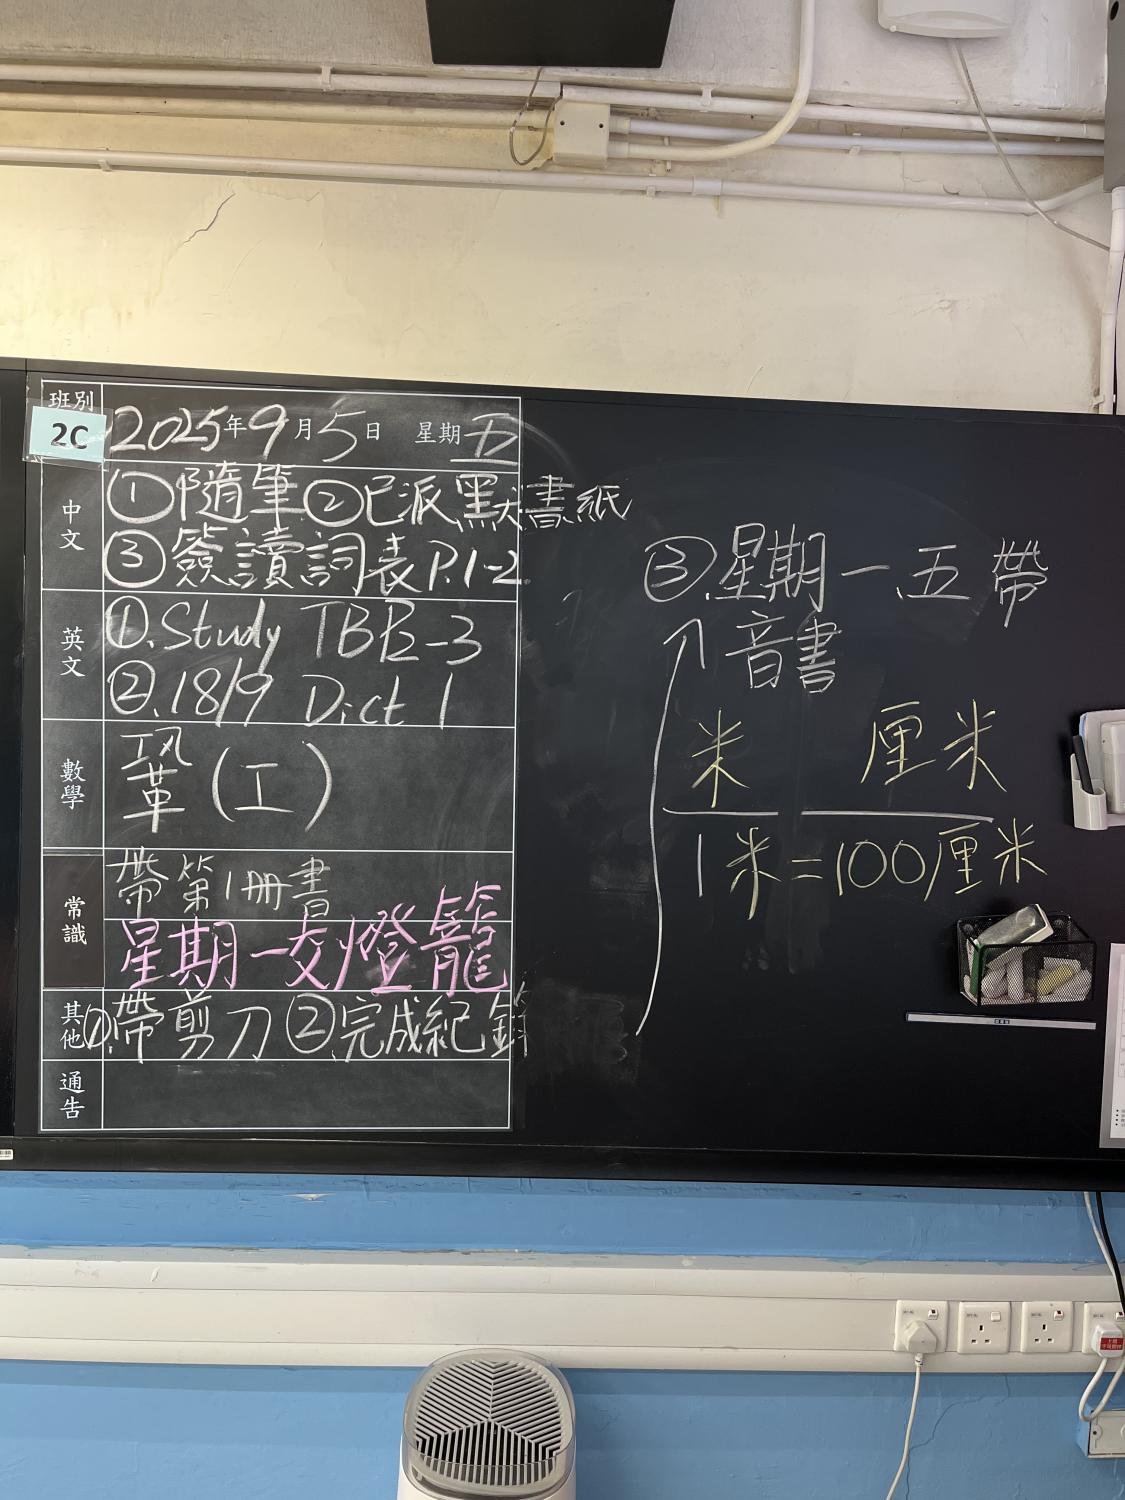 班別
2C
2025年9月5日 星期五
中文
①隨筆②已派默書紙
③簽讀詞表P.1-2
英文
①.Study TB P.2-3
②.18/9 Dict 1
數學
鞏(工)
常識
帶第1冊書
星期一交燈籠
其他
①.帶剪刀②.完成紀錄
通告
③.星期一、五帶
音書
米 厘米
1米=100厘米